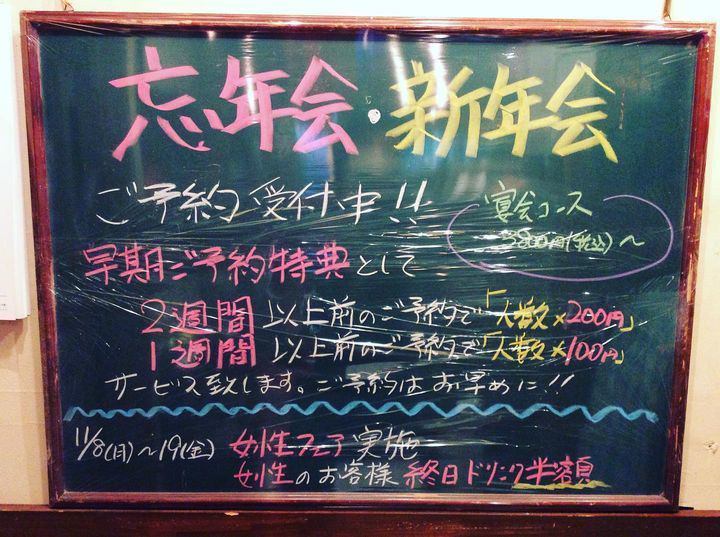 忘年会・新年会
ご予約受付中!!
宴会コース
3800円(税込)〜
早期ご予約特典として
2週間以上前のご予約で「人数×200円」
1週間以上前のご予約で「人数×100円」
サービス致します。ご予約はお早めに!!
11/8(月)〜19(金) 女性フェア実施
女性のお客様 終日ドリンク半額